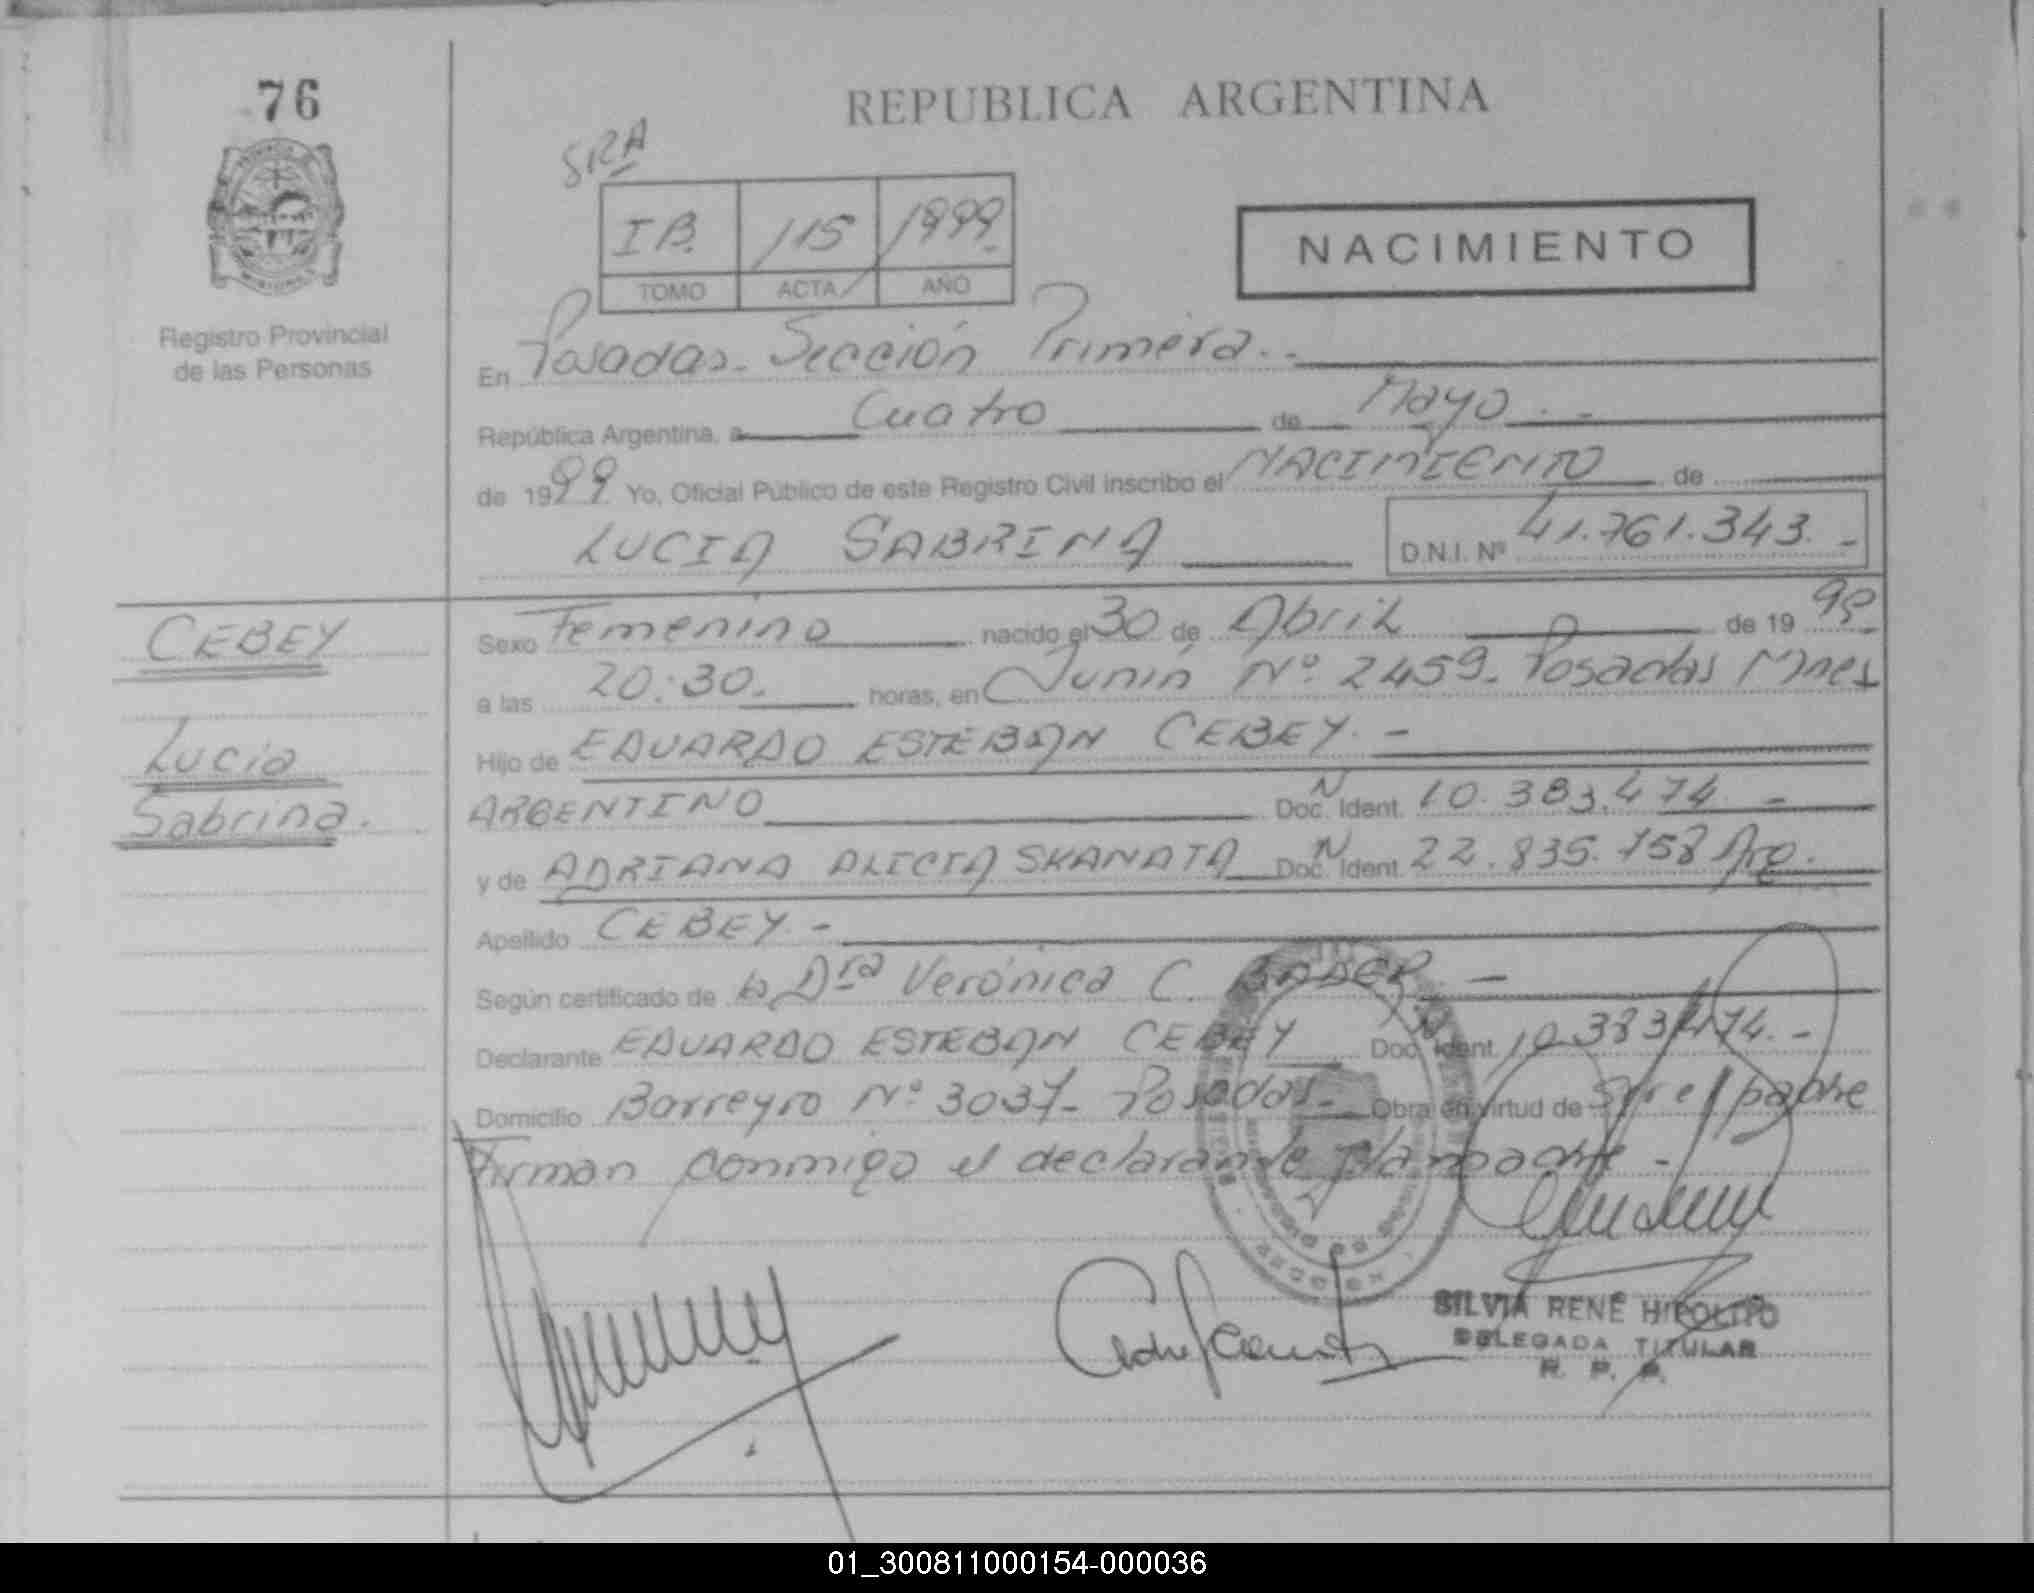 76
REPUBLICA ARGENTINA
SRA
I B. 115 1999
TOMO ACTA AÑO
NACIMIENTO
Registro Provincial
de las Personas
En Posadas - Sección Primera.-
República Argentina, a Cuatro de Mayo.-
de 1999. Yo, Oficial Público de este Registro Civil inscribo el NACIMIENTO de
LUCIA SABRINA D.N.I. Nº 41.761.343.-
CEBEY
Lucia
Sabrina.
Sexo Femenino nacido el 30 de Abril de 19 99
a las 20:30. horas, en Junin Nº 2459- Posadas Mnes
Hijo de EDUARDO ESTEBAN CEBEY.-
ARGENTINO Doc. Ident. N 10.383.474 -
y de ADRIANA ALICIA SKANATA Doc. Ident. N 22.835.758 Arg.
Apellido CEBEY.-
Según certificado de la Dra Verónica C. BADER -
Declarante EDUARDO ESTEBAN CEBEY Doc. Ident. N 10.383.474.-
Domicilio Barreyro Nº 3037- Posadas- Obra en virtud de ser el padre
Firman conmigo el declarante y la madre -
SILVIA RENE HIPOLITO
DELEGADA TITULAR
R. P. P.
01_300811000154-000036